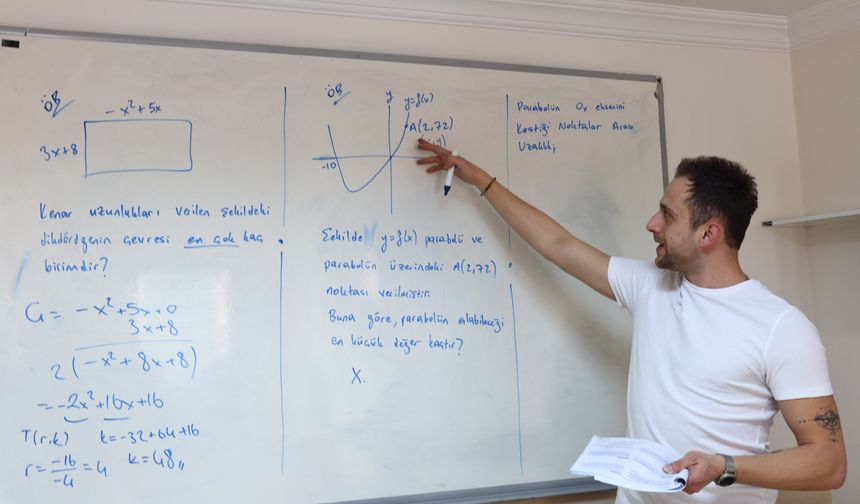 ÖR
-x²+5x
3x+8
Kenar uzunlukları verilen şekildeki
dikdörtgenin çevresi en çok kaç
birimdir?
Ç = -x²+5x+0
3x+8
2(-x²+8x+8)
= -2x²+16x+16
T(r,k) k=-32+64+16
r = -16/-4 = 4 k=48
ÖR
y y=f(x)
A(2,72)
-10
Şekilde y=f(x) parabolü ve
parabolün üzerindeki A(2,72)
noktası verilmiştir.
Buna göre, parabolün alabileceği
en küçük değer kaçtır?
X.
Parabolün Ox eksenini
Kestiği Noktalar Arası
Uzaklık;